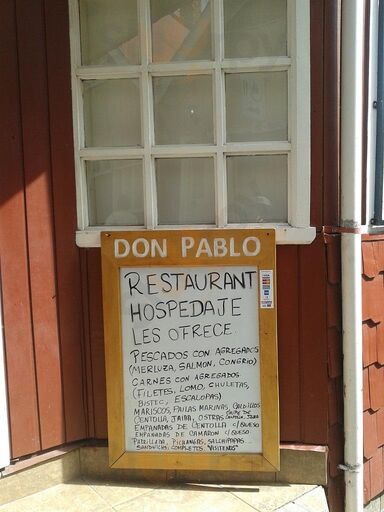 DON PABLO
RESTAURANT
HOSPEDAJE
LES OFRECE
PESCADOS CON AGREGADOS
(MERLUZA, SALMON, CONGRIO)
CARNES CON AGREGADOS
(FILETES, LOMO, CHULETAS,
BISTEC, ESCALOPAS)
MARISCOS, PAILAS MARINAS, CALDILLOS
CENTOLLA, JAIBA, OSTRAS
EMPANADAS DE CENTOLLA C/QUESO
EMPANADAS DE CAMARON C/QUESO
PARRILLADA, PICHANGAS, SALCHIPAPAS
SANDWICHS, COMPLETOS. "VISITENOS"